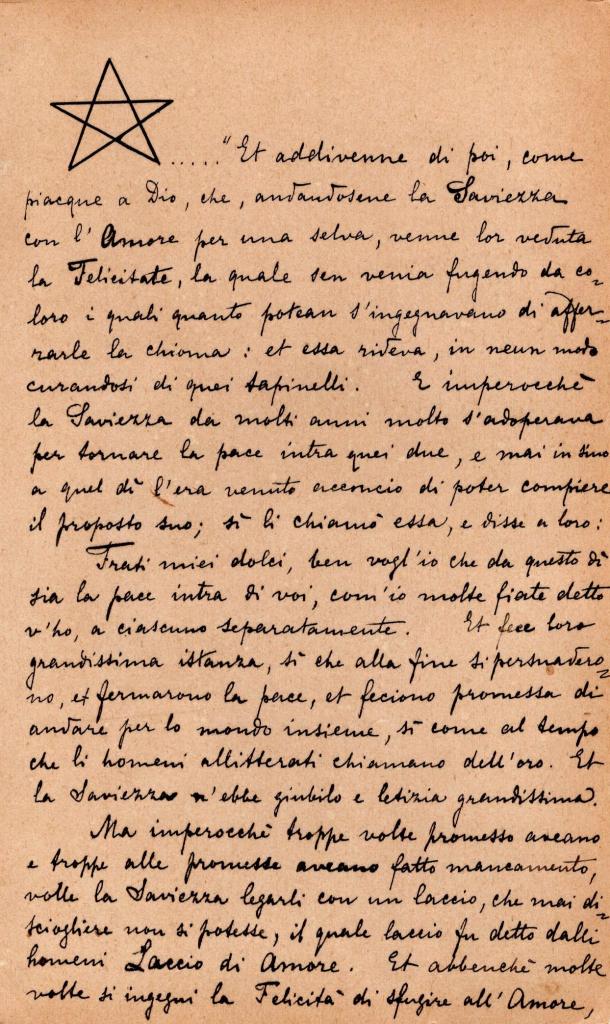 ....."Et addivenne di poi, come
piacque a Dio, che, andandosene la Saviezza
con l'Amore per una selva, venne lor veduta
la Felicitate, la quale sen venia fugendo da co=
loro i quali quanto potean s'ingegnavano di affer=
rarle la chioma: et essa rideva, in neun modo
curandosi di quei tapinelli. E imperocchè
la Saviezza da molti anni molto s'adoperava
per tornare la pace intra quei due, e mai in sino
a quel dì l'era venuto acconcio di poter compiere
il proposto suo; sì li chiamò essa, e disse a loro:
Frati miei dolci, ben vogl'io che da questo dì
sia la pace intra di voi, com'io molte fiate detto
v'ho, a ciascuno separatamente. Et fece loro
grandissima istanza, sì che alla fine si persuadero=
no, et fermarono la pace, et feciono promessa di
andare per lo mondo insieme, sì come al tempo
che li homeni allitterati chiamano dell'oro. Et
la Saviezza n'ebbe giubilo e letizia grandissima.
Ma imperocchè troppe volte promesso aveano
e troppe alle promesse aveano fatto mancamento,
volle la Saviezza legarli con un laccio, che mai di=
sciogliere non si potesse, il quale laccio fu detto dalli
homeni Laccio di Amore. Et abbenchè molte
volte si ingegni la Felicità di sfugire all'Amore,